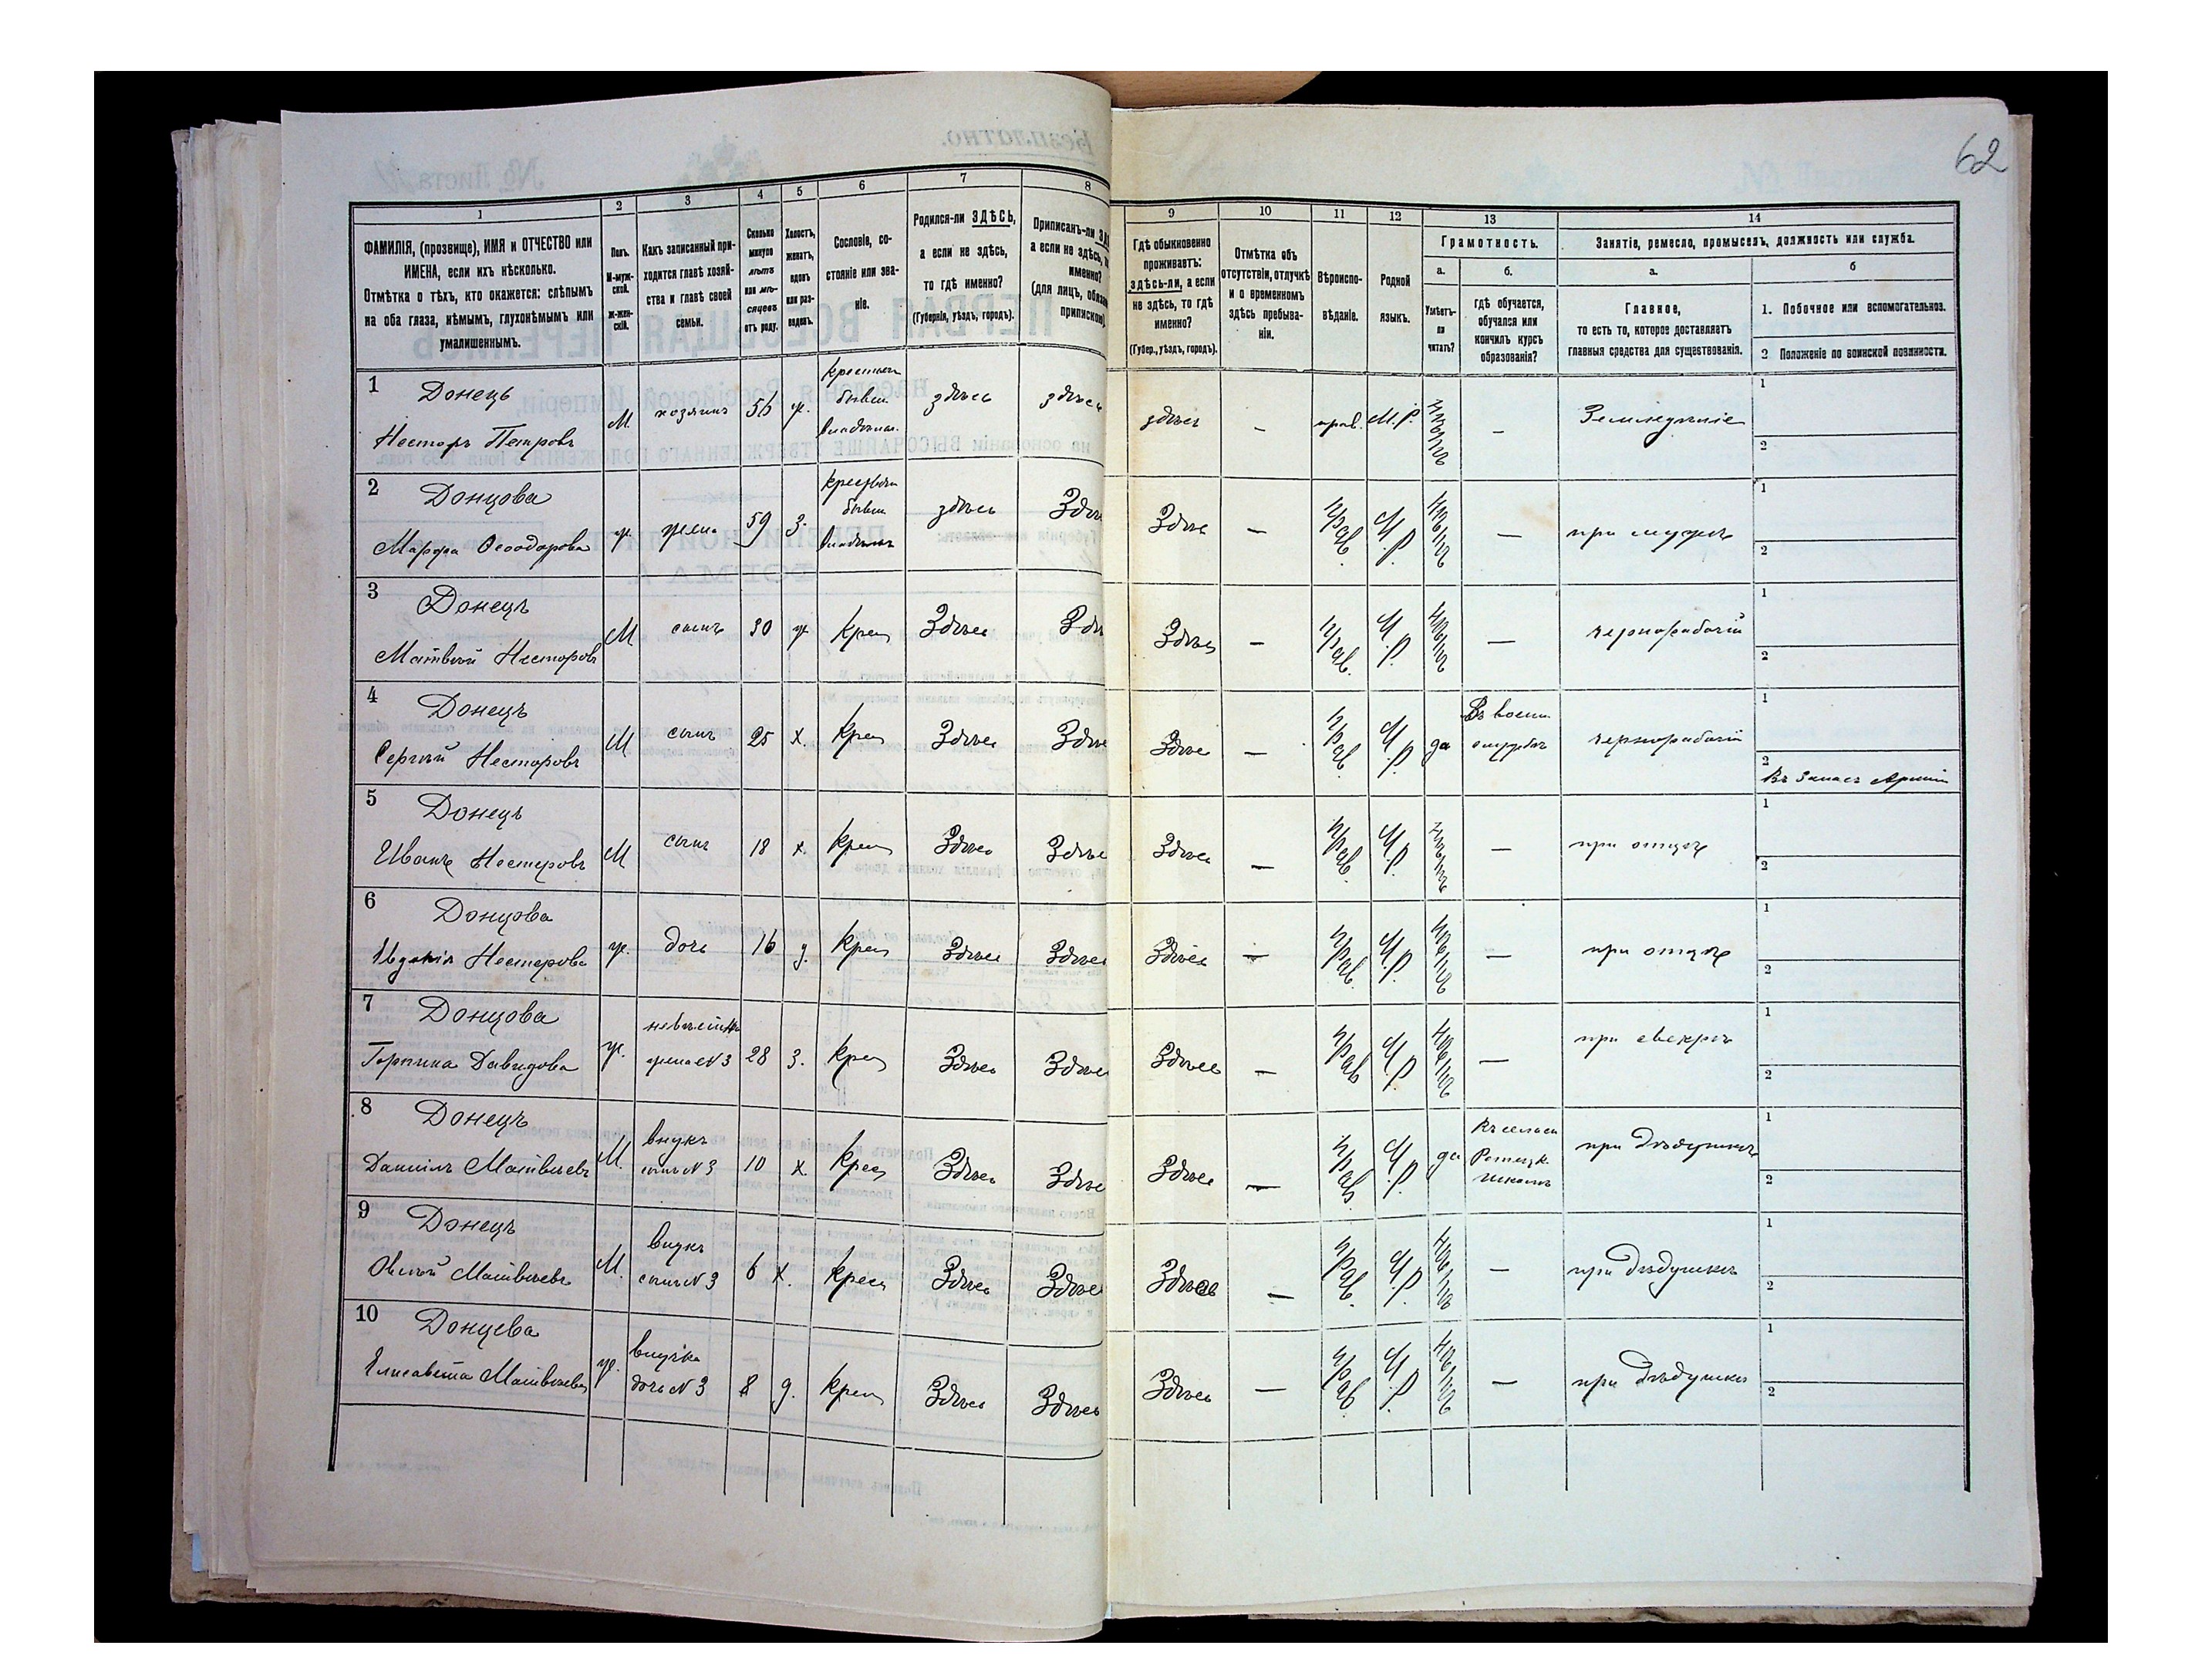 62
1 2 3 4 5 6 7 8 9 10 11 12 13 14
ФАМИЛІЯ, (прозвище), ИМЯ и ОТЧЕСТВО или
ИМЕНА, если ихъ нѣсколько.
Отмѣтка о тѣхъ, кто окажется: слѣпымъ
на оба глаза, нѣмымъ, глухонѣмымъ или
умалишеннымъ.
Полъ.
М-муж-
ской.
ж-жен-
скій.
Какъ записанный при-
ходится главѣ хозяй-
ства и главѣ своей
семьи.
Сколько
минуло
лѣтъ
или мѣ-
сяцевъ
отъ роду.
Холостъ,
женатъ,
вдовъ
или раз-
веденъ.
Сословіе, со-
стояніе или зва-
ніе.
Родился-ли ЗДѢСЬ,
а если не здѣсь,
то гдѣ именно?
(Губернія, уѣздъ, городъ).
Приписанъ-ли
а если не здѣсь,
именно?
(для лицъ,
Гдѣ обыкновенно
проживаетъ:
здѣсь-ли, а если
не здѣсь, то гдѣ
именно?
(Губер., уѣздъ, городъ).
Отмѣтка объ
отсутствіи, отлучкѣ
и о временномъ
здѣсь пребыва-
ніи.
Вѣроиспо-
вѣданіе.
Родной
языкъ.
Грамотность.
а.
Умѣетъ-
ли
читать?
б.
гдѣ обучается,
обучался или
кончилъ курсъ
образованія?
Занятіе, ремесло, промыселъ, должность или служба.
а.
Главное,
то есть то, которое доставляетъ
главныя средства для существованія.
б
1. Побочное или вспомогательное.
2 Положеніе по воинской повинности.
1 Донецъ
Несторъ Петровъ
М. хозяинъ 56 ж. бывш. здѣсь здѣсь здѣсь - прав. М.Р. - Земледѣліе 1
2
2 Донцова
Марфа Ѳеодорова
ж. жена 59 З. бывш здѣсь Здѣсь — Прав. М.Р — при мужѣ 1
2
3 Донецъ
Матвѣй Несторовъ
М сынъ 30 ж Крест Здѣсь Здѣсь — Прав. М.Р. — чернорабочій 1
2
4 Донецъ
Сергѣй Несторовъ
М сынъ 25 х. Крест Здѣсь Здѣсь — Прав. М.Р. да Въ воен. службѣ чернорабочій 1
2 Въ запасѣ Арміи
5 Донецъ
Иванъ Нестеровъ
М сынъ 18 х. Крест Здѣсь Здѣсь Здѣсь — Прав. М.Р. — при отцѣ 1
2
6 Донцова
Евдокія Нестерова
ж. дочь 16 д. Крест Здѣсь Здѣсь Здѣсь — Прав. М.Р. — при отцѣ 1
2
7 Донцова
Горпина Давидова
ж. невѣстка жена N 3 28 З. Крест Здѣсь Здѣсь Здѣсь — Прав М.Р — при свекрѣ 1
2
8 Донецъ
Даніилъ Матвѣевъ
М. внукъ сынъ N 3 10 х. Крест Здѣсь Здѣсь Здѣсь — Прав М.Р. да школѣ при Дѣдушкѣ 1
2
9 Донецъ
Матвѣевъ
М. внукъ сынъ N 3 6 х. Крест Здѣсь Здѣсь Здѣсь — Прав. М.Р. — при Дѣдушкѣ 1
2
10 Донцева
Елисавета Матвѣева
ж. внучка дочь N 3 8 д. Крест Здѣсь Здѣсь Здѣсь — Прав. М.Р. — при Дѣдушкѣ 1
2